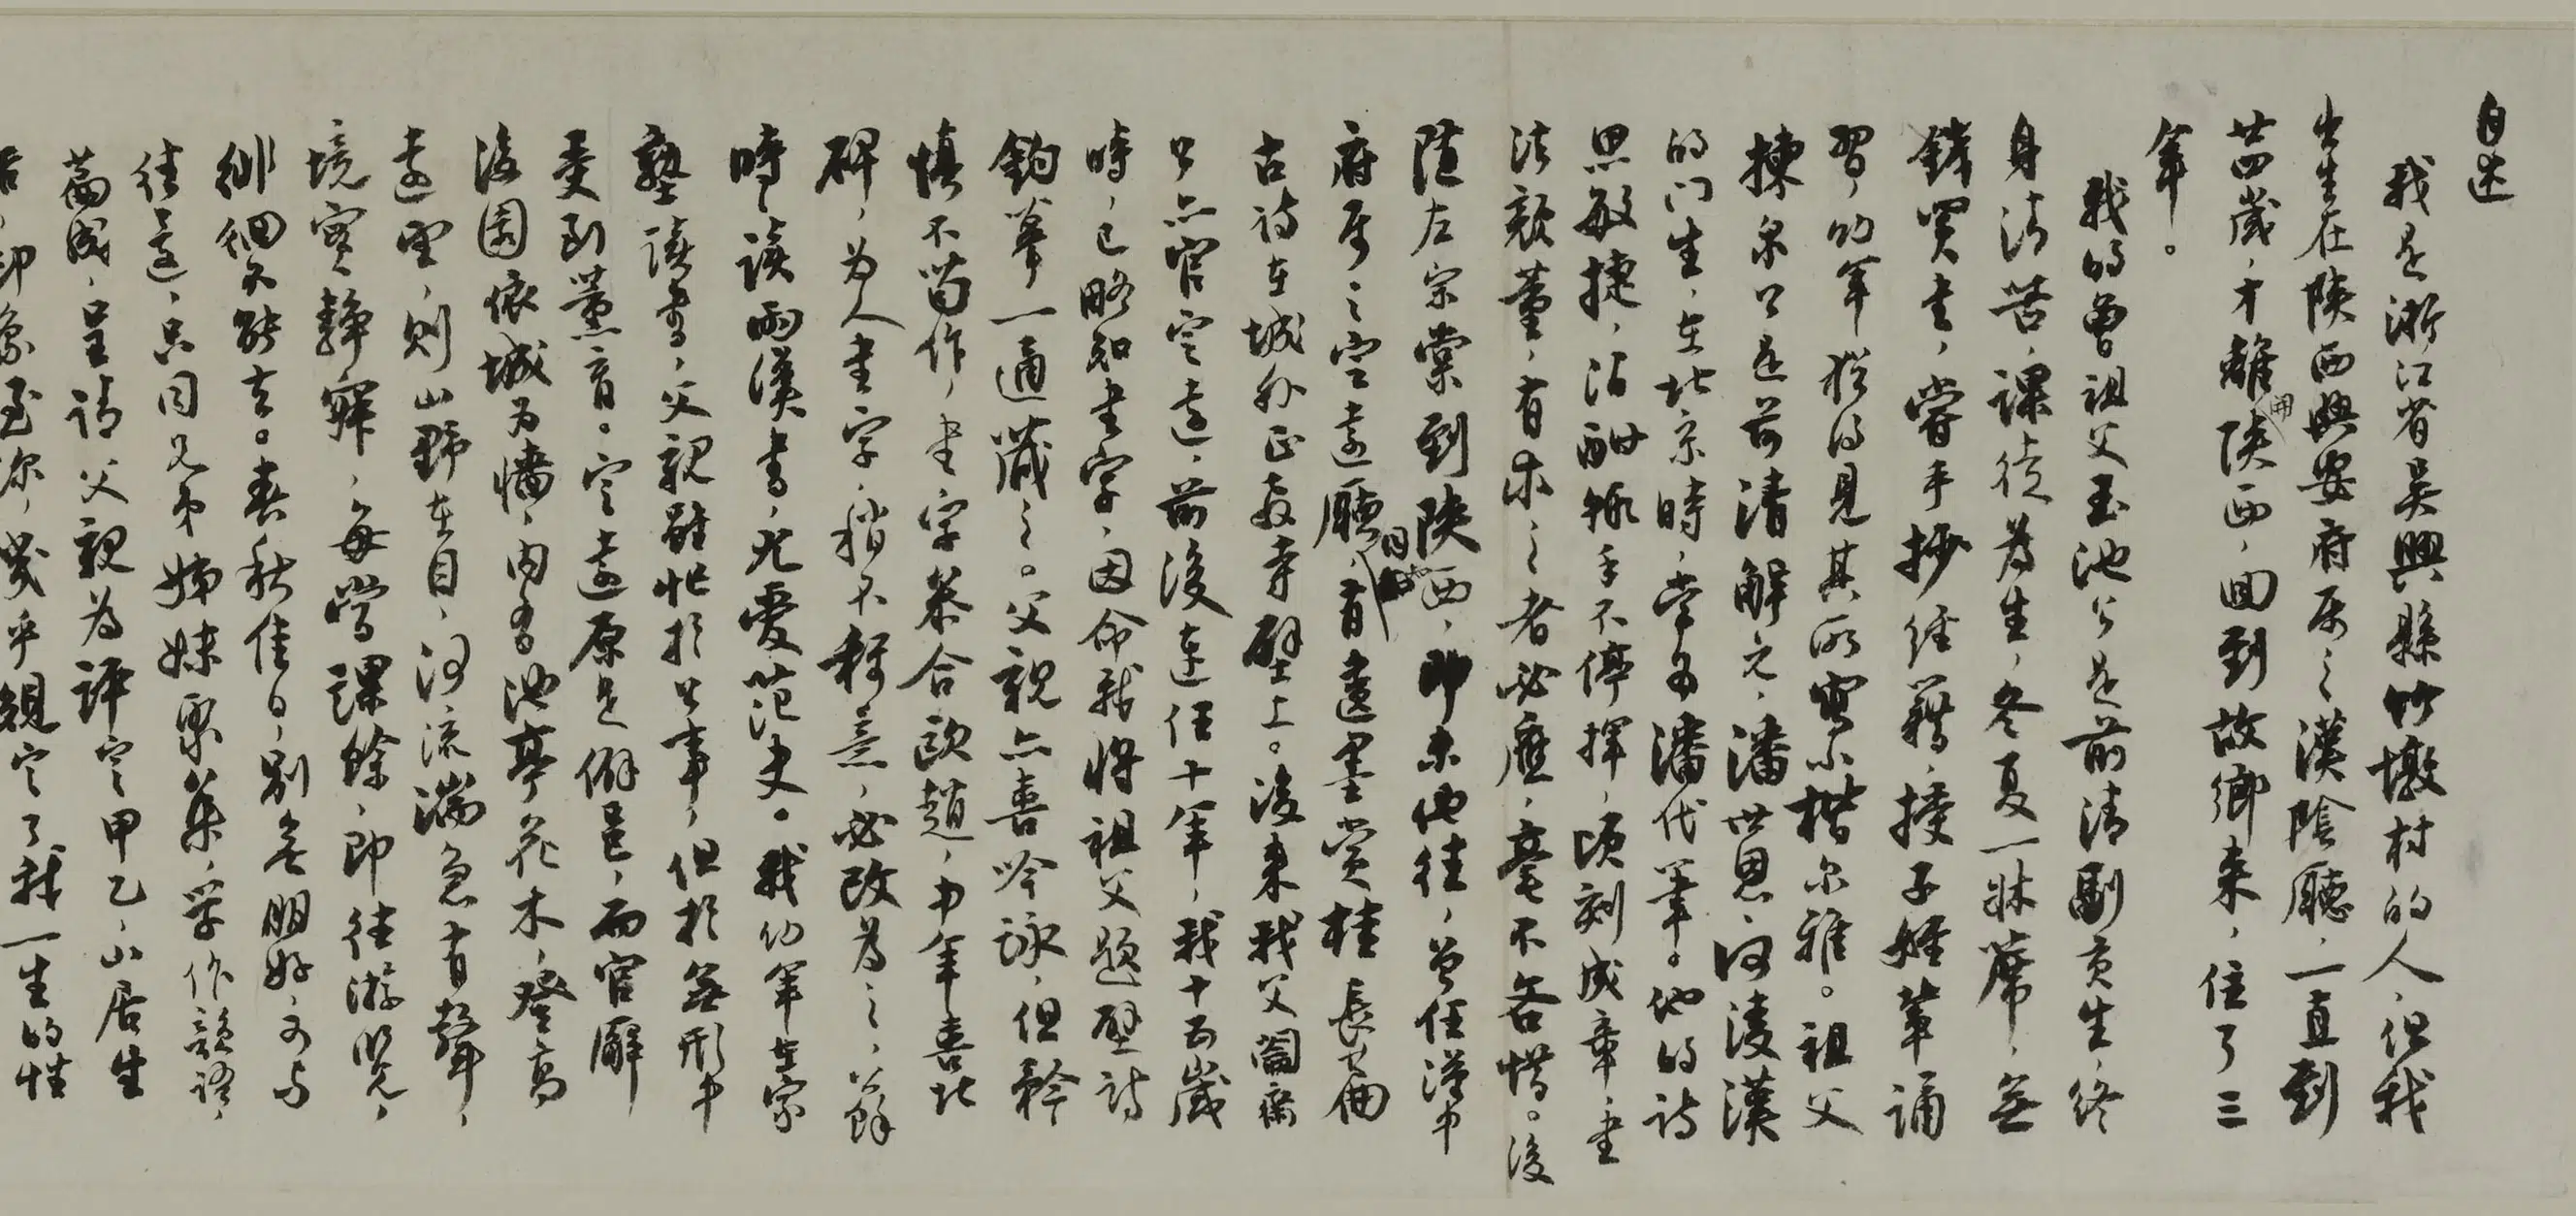 自述
我是浙江省吳興縣竹墩村的人，但我
出生在陝西興安府屬之漢陰廳，一直到
廿四歲，才離開陝西，回到故鄉來，住了三
年。
我的曾祖父玉池公是前清副貢生，終
身清苦，課徒為生，冬夏一牀蓆，無
錢買書，嘗手抄經籍，授子姪輩誦
習，幼年猶得見其所寫小楷尔雅。祖父
揀泉公是前清解元，潘世恩、何淩漢
的门生，在北京時，常為潘代筆。他的詩
思敏捷，沾酣輒手不停揮，頃刻成章，書
法顏董，有求之者必應，毫不吝惜。後
隨左宗棠到陝西，即未他往，曾任漢中
府屬之定遠廳同知，有遺墨賞桂長篇
古詩在城外正教寺壁上。後來我父闇齋
公亦官定遠，前後連任十年，我十五歲
時，已略知書字，因命我將祖父題壁詩
鈎摹一通藏之。父親亦喜吟詠，但矜
慎不苟作，書字恭合歐趙，中年喜北
碑，为人書字，稍不稱意，必改為之，公餘
時時讀兩漢書，尤愛范史。我幼年在家
塾讀書，父親雖忙於公事，但於無形中
受到薰育。定遠原是僻邑，而官廨
後園依城为墻，内有池亭花木，登高
遠望，則山野在目，河流湍急有聲，
境實靜寂，每當課餘，即往游覽，
徘徊不能去。春秋佳日，別無朋好可与
往還，只同兄弟姊妹聚集，學作韻語，
篇成，呈請父親為評定甲乙，山居生
活，印象至深，幾乎規定了我一生的性